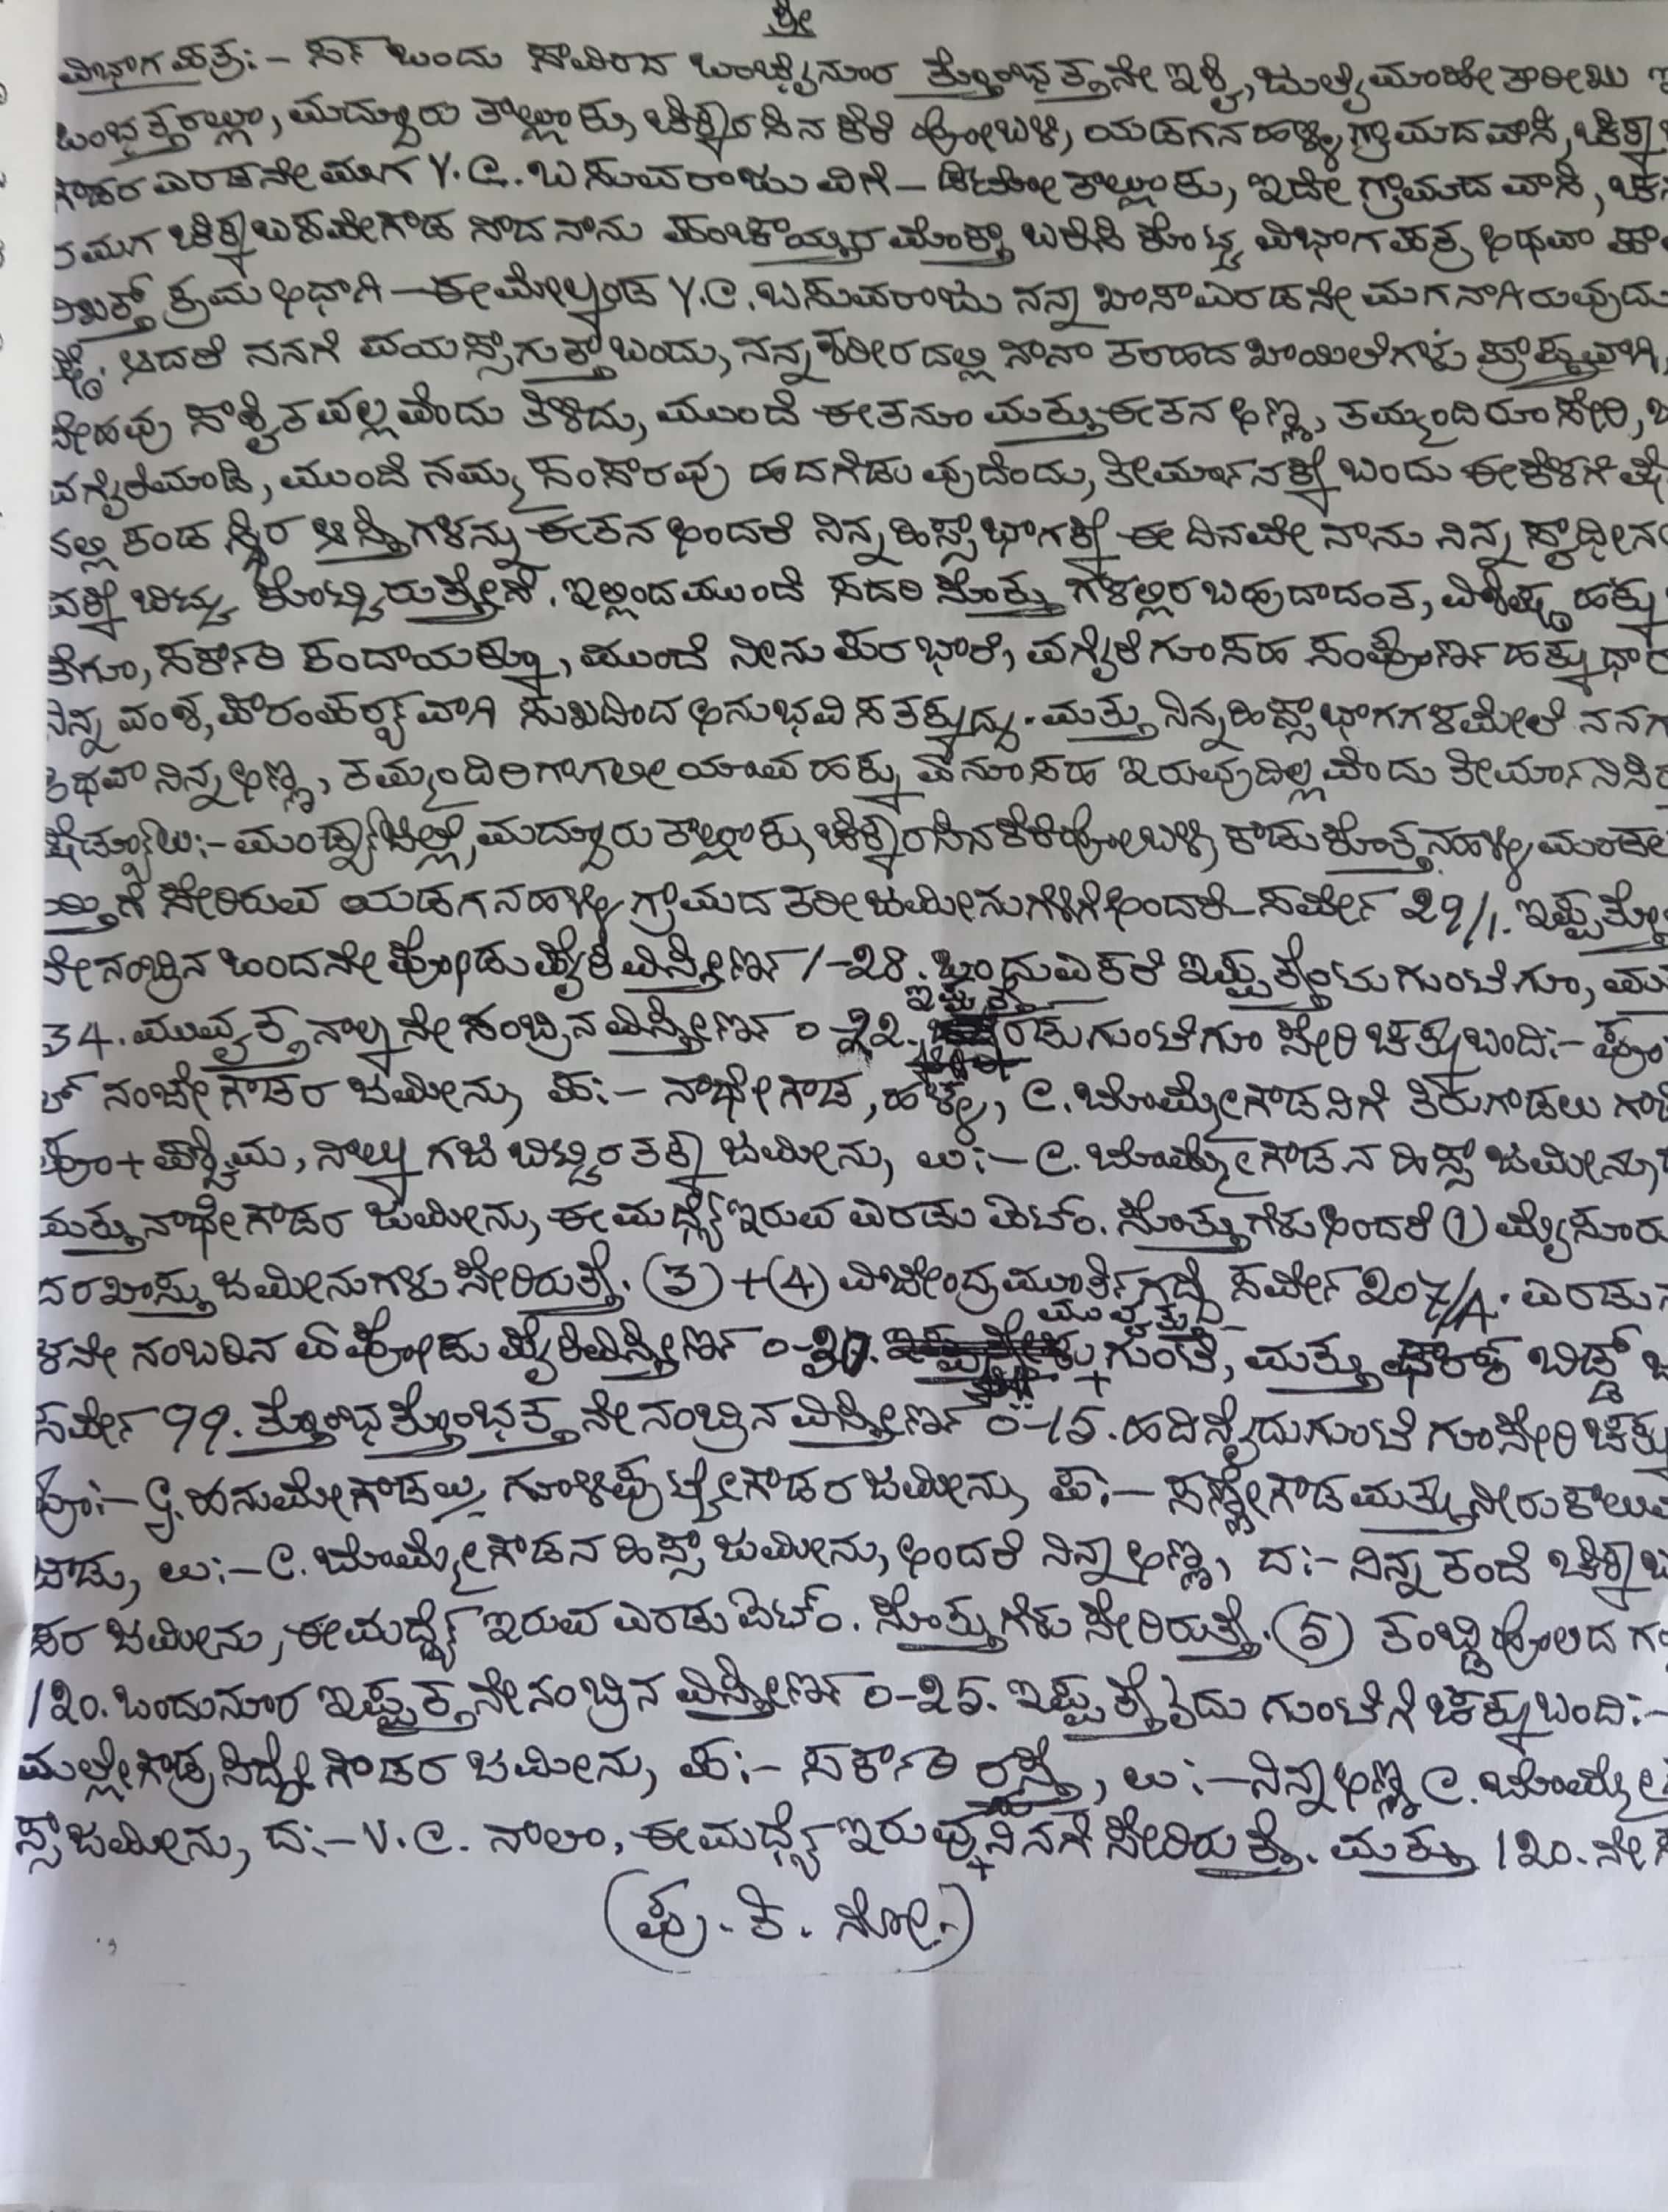 ಶ್ರೀ
ವಿಭಾಗ ಪತ್ರ:- ಸನ್ ಒಂದು ಸಾವಿರದ ಒಂಭೈನೂರ ತ್ತೊಂಭತ್ತನೇ ಇಸ್ವಿ, ಜುಲೈ ಮಾಹೇ ತಾರೀಖು
ಒಂಭತ್ತರಲ್ಲೂ, ಮದ್ದೂರು ತಾಲ್ಲೂಕು, ಚಿಕ್ಕಾರಸಿನ ಕೆರೆ ಹೋಬಳಿ, ಯಡಗನಹಳ್ಳಿ ಗ್ರಾಮದ ವಾಸಿ,
ಗೌಡರ ಎರಡನೇ ಮಗ Y.C. ಬಸುವರಾಜುವಿಗೆ - ತಾಲ್ಲೂಕು, ಇದೇ ಗ್ರಾಮದ ವಾಸಿ,
ಮಗ ಚಿಕ್ಕಬಸವೇಗೌಡ ನಾದ ನಾನು ಪಂಚಾಯ್ತರ ಮೊಕ್ತಾ ಬರೆಸಿ ಕೊಟ್ಟ ವಿಭಾಗ ಪತ್ರ ಅಥವಾ
ಕ್ರಮ ಅಧಾಗಿ - ಈ ಮೇಲ್ಕಂಡ Y.C. ಬಸುವರಾಜು ನನ್ನ ಖಾಸಾ ಎರಡನೇ ಮಗನಾಗಿರುವುದು
ಆದರೆ ನನಗೆ ವಯಸ್ಸಾಗುತ್ತಾ ಬಂದು, ನನ್ನ ಶರೀರದಲ್ಲಿ ನಾನಾ ತರಹದ ಖಾಯಿಲೆಗಳು ಪ್ರಾಪ್ತವಾಗಿ,
ದೇಹವು ಸಾಶ್ವಿತವಲ್ಲವೆಂದು ತಿಳಿದು, ಮುಂದೆ ಈತನೂ ಮತ್ತು ಈತನ ಅಣ್ಣ, ತಮ್ಮಂದಿರೂ ಸೇರಿ,
ವಗೈರೆಮಾಡಿ, ಮುಂದೆ ನಮ್ಮ ಸಂಸಾರವು ಹದಗೆಡುವುದೆಂದು, ತೀರ್ಮಾನಕ್ಕೆ ಬಂದು ಈ ಕೆಳಗೆ
ನಲ್ಲಿ ಕಂಡ ಸ್ಥಿರ ಆಸ್ತಿಗಳನ್ನು ಈತನ ಅಂದರೆ ನಿನ್ನ ಹಿಸ್ಸೆ ಭಾಗಕ್ಕೆ ಈ ದಿನವೇ ನಾನು ನಿನ್ನ ಸ್ವಾಧೀನ
ವಕ್ಕೆ ಬಿಟ್ಟು ಕೊಟ್ಟಿರುತ್ತೇನೆ. ಇಲ್ಲಿಂದ ಮುಂದೆ ಸದರಿ ಸೊತ್ತುಗಳಲ್ಲಿರಬಹುದಾದಂತ, ವಿಶಿಷ್ಟ ಹಕ್ಕು
ತೆಗೂ, ಸರ್ಕಾರಿ ಕಂದಾಯಕ್ಕೂ, ಮುಂದೆ ನೀನು ಪರಭಾರೆ, ವಗೈರೆಗೂ ಸಹ ಸಂಪೂರ್ಣ ಹಕ್ಕುಧಾರ
ನಿನ್ನ ವಂಶ, ಪಾರಂಪರ್ಯವಾಗಿ ಸುಖದಿಂದ ಅನುಭವಿಸತಕ್ಕದ್ದು. ಮತ್ತು ನಿನ್ನ ಹಿಸ್ಸಾಭಾಗಗಳ ಮೇಲೆ ನನಗಾ
ಅಥವಾ ನಿನ್ನ ಅಣ್ಣ, ತಮ್ಮಂದಿರಿಗಾಗಲೀ ಯಾವ ಹಕ್ಕು ಏನೂ ಸಹ ಇರುವುದಿಲ್ಲವೆಂದು ತೀರ್ಮಾನಿಸಿ
ಷೆಡ್ಯೂಲು:- ಮಂಡ್ಯಾ ಜಿಲ್ಲೆ, ಮದ್ದೂರು ತಾಲ್ಲೂಕು, ಚಿಕ್ಕಾರಸಿನಕೆರೆ ಹೋಬಳಿ, ಕಾಡುಕೊತ್ತನಹಳ್ಳಿ
ಸೇರಿರುವ ಯಡಗನಹಳ್ಳಿ ಗ್ರಾಮದ ತರೀ ಜಮೀನುಗಳಿಗೆ ಅಂದರೆ - ಸರ್ವೇ 29/1.
ನೇ ನಂಬ್ರಿನ ಒಂದನೇ ಪೋಡು ಪೈಕಿ ವಿಸ್ತೀರ್ಣ 1-28. ಒಂದು ಎಕರೆ ಇಪ್ಪತ್ತೆಂಟು ಗುಂಟೆಗೂ,
ಇಪ್ಪತ್ತೆ
34. ಮುವ್ವತ್ತ ನಾಲ್ಕನೇ ನಂಬ್ರಿನ ವಿಸ್ತೀರ್ಣ 0-22. ರಡು ಗುಂಟೆಗೂ ಸೇರಿ ಚಕ್ಕುಬಂದಿ:- ಪೂ
ನಂಜೇಗೌಡರ ಜಮೀನು, ಪ:- ನಾಥೇಗೌಡ, ಹಳ್ಳ, C. ಬೊಮ್ಮೇಗೌಡನಿಗೆ ತಿರುಗಾಡಲು
ಪೂ + ಪಶ್ಚಿಮ, ನಾಲ್ಕು ಗಜ ಬಿಟ್ಟಿರತಕ್ಕ ಜಮೀನು, ಉ:- C. ಬೊಮ್ಮೇಗೌಡನ ಹಿಸ್ಸೆ ಜಮೀನು,
ಮತ್ತು ನಾಥೇಗೌಡರ ಜಮೀನು, ಈ ಮಧ್ಯೆ ಇರುವ ಎರಡು ಐಟಂ. ಸೊತ್ತುಗಳು ಅಂದರೆ (1) ಮೈಸೂರು
ದರಖಾಸ್ತು ಜಮೀನುಗಳು ಸೇರಿರುತ್ತೆ. (3) + (4) ವಿಜೇಂದ್ರಮೂರ್ತಿ ಗದ್ದೆ ಸರ್ವೇ 207/A. ಎರಡು
ಮುವ್ವತ್ತು
ಳನೇ ನಂಬರಿನ ಎ ಪೋಡು ಪೈಕಿ ವಿಸ್ತೀರ್ಣ 0-30. ಗುಂಟೆ, ಮತ್ತು
ಸರ್ವೇ 99. ತ್ತೊಂಭತ್ತೊಂಭತ್ತನೇ ನಂಬ್ರಿನ ವಿಸ್ತೀರ್ಣ 0-15. ಹದಿನೈದು ಗುಂಟೆಗೂ ಸೇರಿ
ಪೂ:- ಹನುಮೇಗೌಡ ಗೂಳಿಪುಟ್ಟೇಗೌಡರ ಜಮೀನು, ಪ:- ಸಣ್ಣೇಗೌಡ ಮತ್ತು ನೀರು ಕಾಲು
ಉ:- C. ಬೊಮ್ಮೇಗೌಡನ ಹಿಸ್ಸೆ ಜಮೀನು, ಅಂದರೆ ನಿನ್ನ ಅಣ್ಣ, ದ:- ನಿನ್ನ ತಂದೆ
ಜಮೀನು, ಈ ಮಧ್ಯೆ ಇರುವ ಎರಡು ಐಟಂ. ಸೊತ್ತುಗಳು ಸೇರಿರುತ್ತೆ. (5) ಹೊಲದ
120. ಒಂದುನೂರ ಇಪ್ಪತ್ತನೇ ನಂಬ್ರಿನ ವಿಸ್ತೀರ್ಣ 0-25. ಇಪ್ಪತ್ತೈದು ಗುಂಟೆಗೆ ಚಕ್ಕುಬಂದಿ:-
ಮಲ್ಲೇಗೌಡ್ರ ಸಿದ್ದೇಗೌಡರ ಜಮೀನು, ಪ:- ಸರ್ಕಾರಿ ರಸ್ತೆ, ಉ:- ನಿನ್ನ ಅಣ್ಣ C. ಬೊಮ್ಮೇ
ಸ್ಸೆ ಜಮೀನು, ದ:- V.C. ನಾಲಾ, ಈ ಮಧ್ಯೆ ಇರುವ್ವ ನಿನಗೆ ಸೇರಿರುತ್ತೆ. ಮತ್ತು 120. ನೇ
(ಪು. ತಿ. ನೋ.)